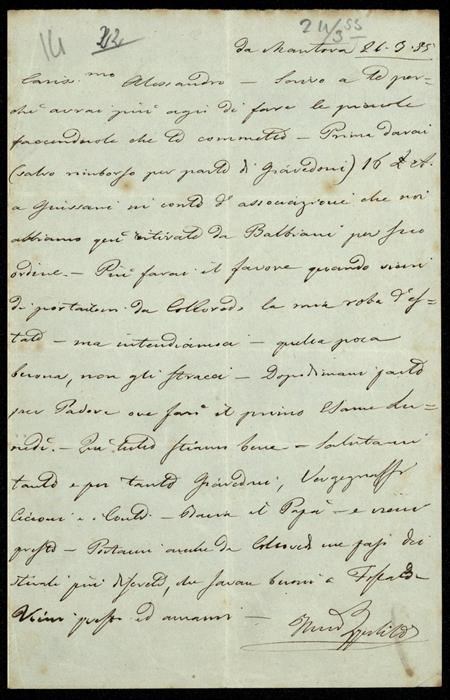 14 22 24/3 55
da Mantova 21.3.55
Cariss.mo Alessandro — Scrivo a te per-
chè avrai più agio di fare le piccole
faccenduole che ti commetto — Prima darai
(salvo rimborso per parte di) 16
a Giussani in conto d'associazioni che noi
abbiamo quì ritirato da Balbiani per suo
ordine. — Più farai il favore quando vieni
di portarmi da Colloredo la mia roba d'es-
tate — ma intendiamoci — quella poca
buona, non gli stracci — Dopodimani parto
per Padova ove farò il primo Esame Lu-
nedì. — Quì tutti stiamo bene — Salutami
tanto e per tanto
Cicconi e i Conti — Bacia il Papà — e vieni
presto — Portami anche da Colloredo un pajo di
stivali più discreti, che saran buoni a
Vieni presto ed amami —
Ippolito